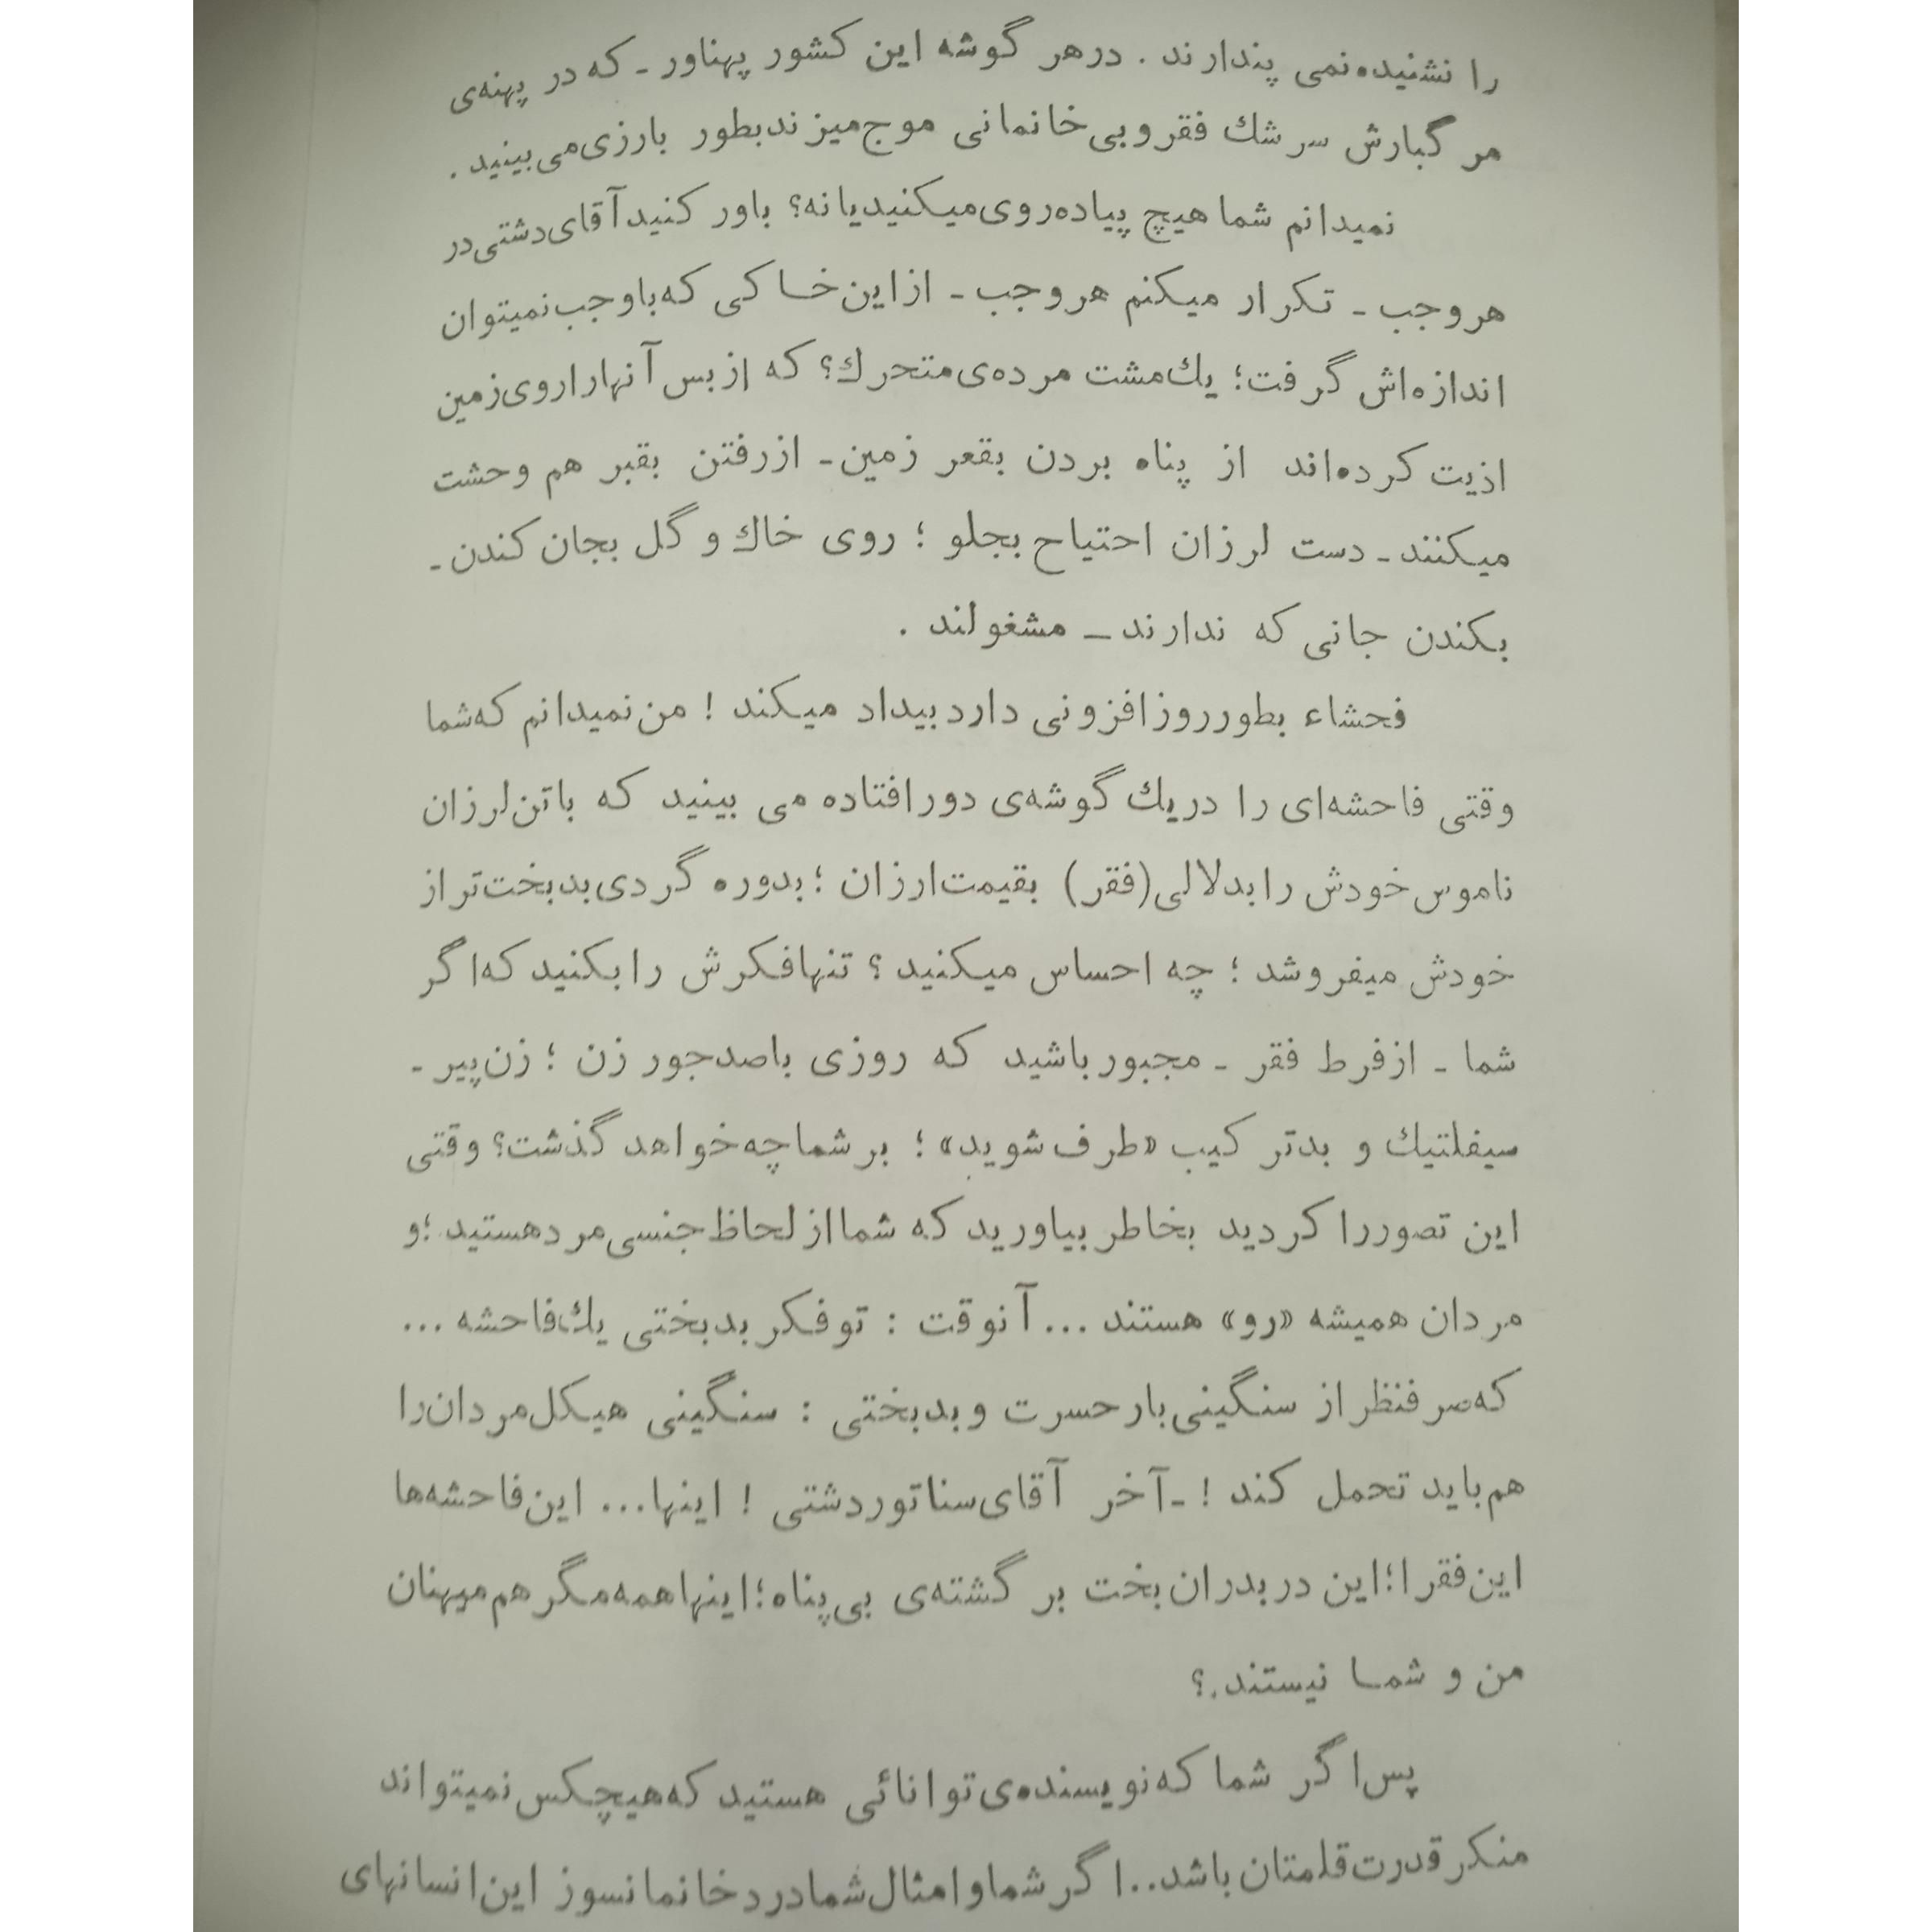 را نشنیده‌نمی پندارند . درهر گوشه این کشور پهناور ـ که در پهنه‌ی
مر گبارش سرشك فقر و بی‌خانمانی موج‌میزند بطور بارزی‌می‌بینید .
نمیدانم شما هیچ پیاده‌روی‌میکنیدیا نه؟ باور کنید آقای‌دشتی‌در
هروجب ـ تکرار میکنم هروجب ـ ازاین‌خاکی که‌باوجب‌نمیتوان
اندازه‌اش گرفت؛ یك‌مشت مرده‌ی‌متحرك؟ که ازبس آنهاراروی‌زمین
اذیت کرده‌اند از پناه بردن بقعر زمین ـ ازرفتن بقبر هم وحشت
میکنند ـ دست لرزان احتیاح بجلو ؛ روی خاك و گل بجان کندن ـ
بکندن جانی که ندارند ـ مشغولند .
فحشاء بطورروزافزونی داردبیداد میکند ! من‌نمیدانم که‌شما
وقتی فاحشه‌ای را دریك گوشه‌ی دورافتاده می بینید که باتن‌لرزان
ناموس‌خودش رابدلالی(فقر) بقیمت‌ارزان ؛ بدوره گردی‌بدبخت‌تراز
خودش میفروشد ؛ چه احساس میکنید ؟ تنهافکرش رابکنید که‌اگر
شما ـ ازفرط فقر ـ مجبورباشید که روزی باصدجور زن ؛ زن‌پیر ـ
سیفلتیك و بدتر کیب «طرف‌شوید» ؛ برشماچه‌خواهد گذشت؟ وقتی
این تصوررا کردید بخاطر بیاورید که شمااز لحاظ‌جنسی‌مردهستید ؛و
مردان همیشه «رو» هستند ... آنوقت : توفکر بدبختی یك‌فاحشه ...
که‌صرفنظراز سنگینی‌بارحسرت وبدبختی : سنگینی هیکل‌مردان‌را
هم‌باید تحمل کند ! ـ آخر آقای‌سناتوردشتی ! اینها... این‌فاحشه‌ها
این‌فقرا؛این دربدران‌بخت بر گشته‌ی بی‌پناه؛اینهاهمه‌مگرهم‌میهنان
من و شما نیستند.؟
پس‌اگر شما که‌نویسنده‌ی‌توانائی هستید که‌هیچکس‌نمیتواند
منکرقدرت‌قلمتان‌باشد..اگرشماوامثال‌شمادردخانمانسوز این‌انسانهای